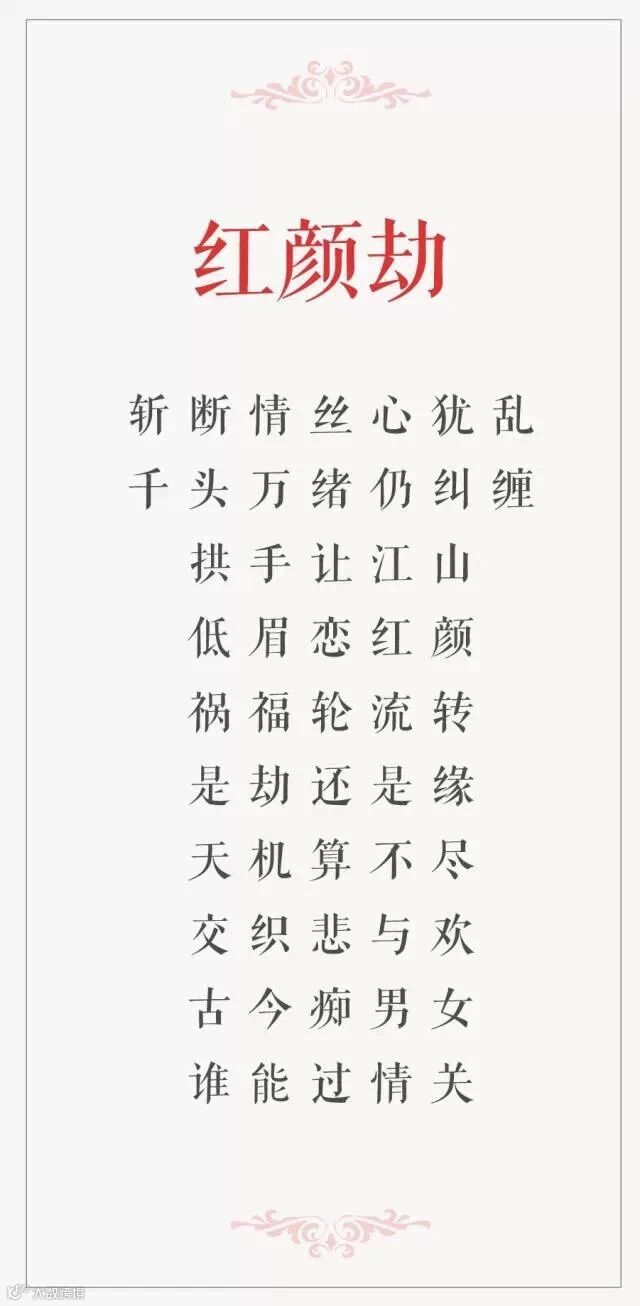 红颜劫
斩断情丝心犹乱
千头万绪仍纠缠
拱手让江山
低眉恋红颜
祸福轮流转
是劫还是缘
天机算不尽
交织悲与欢
古今痴男女
谁能过情关
大数跨境